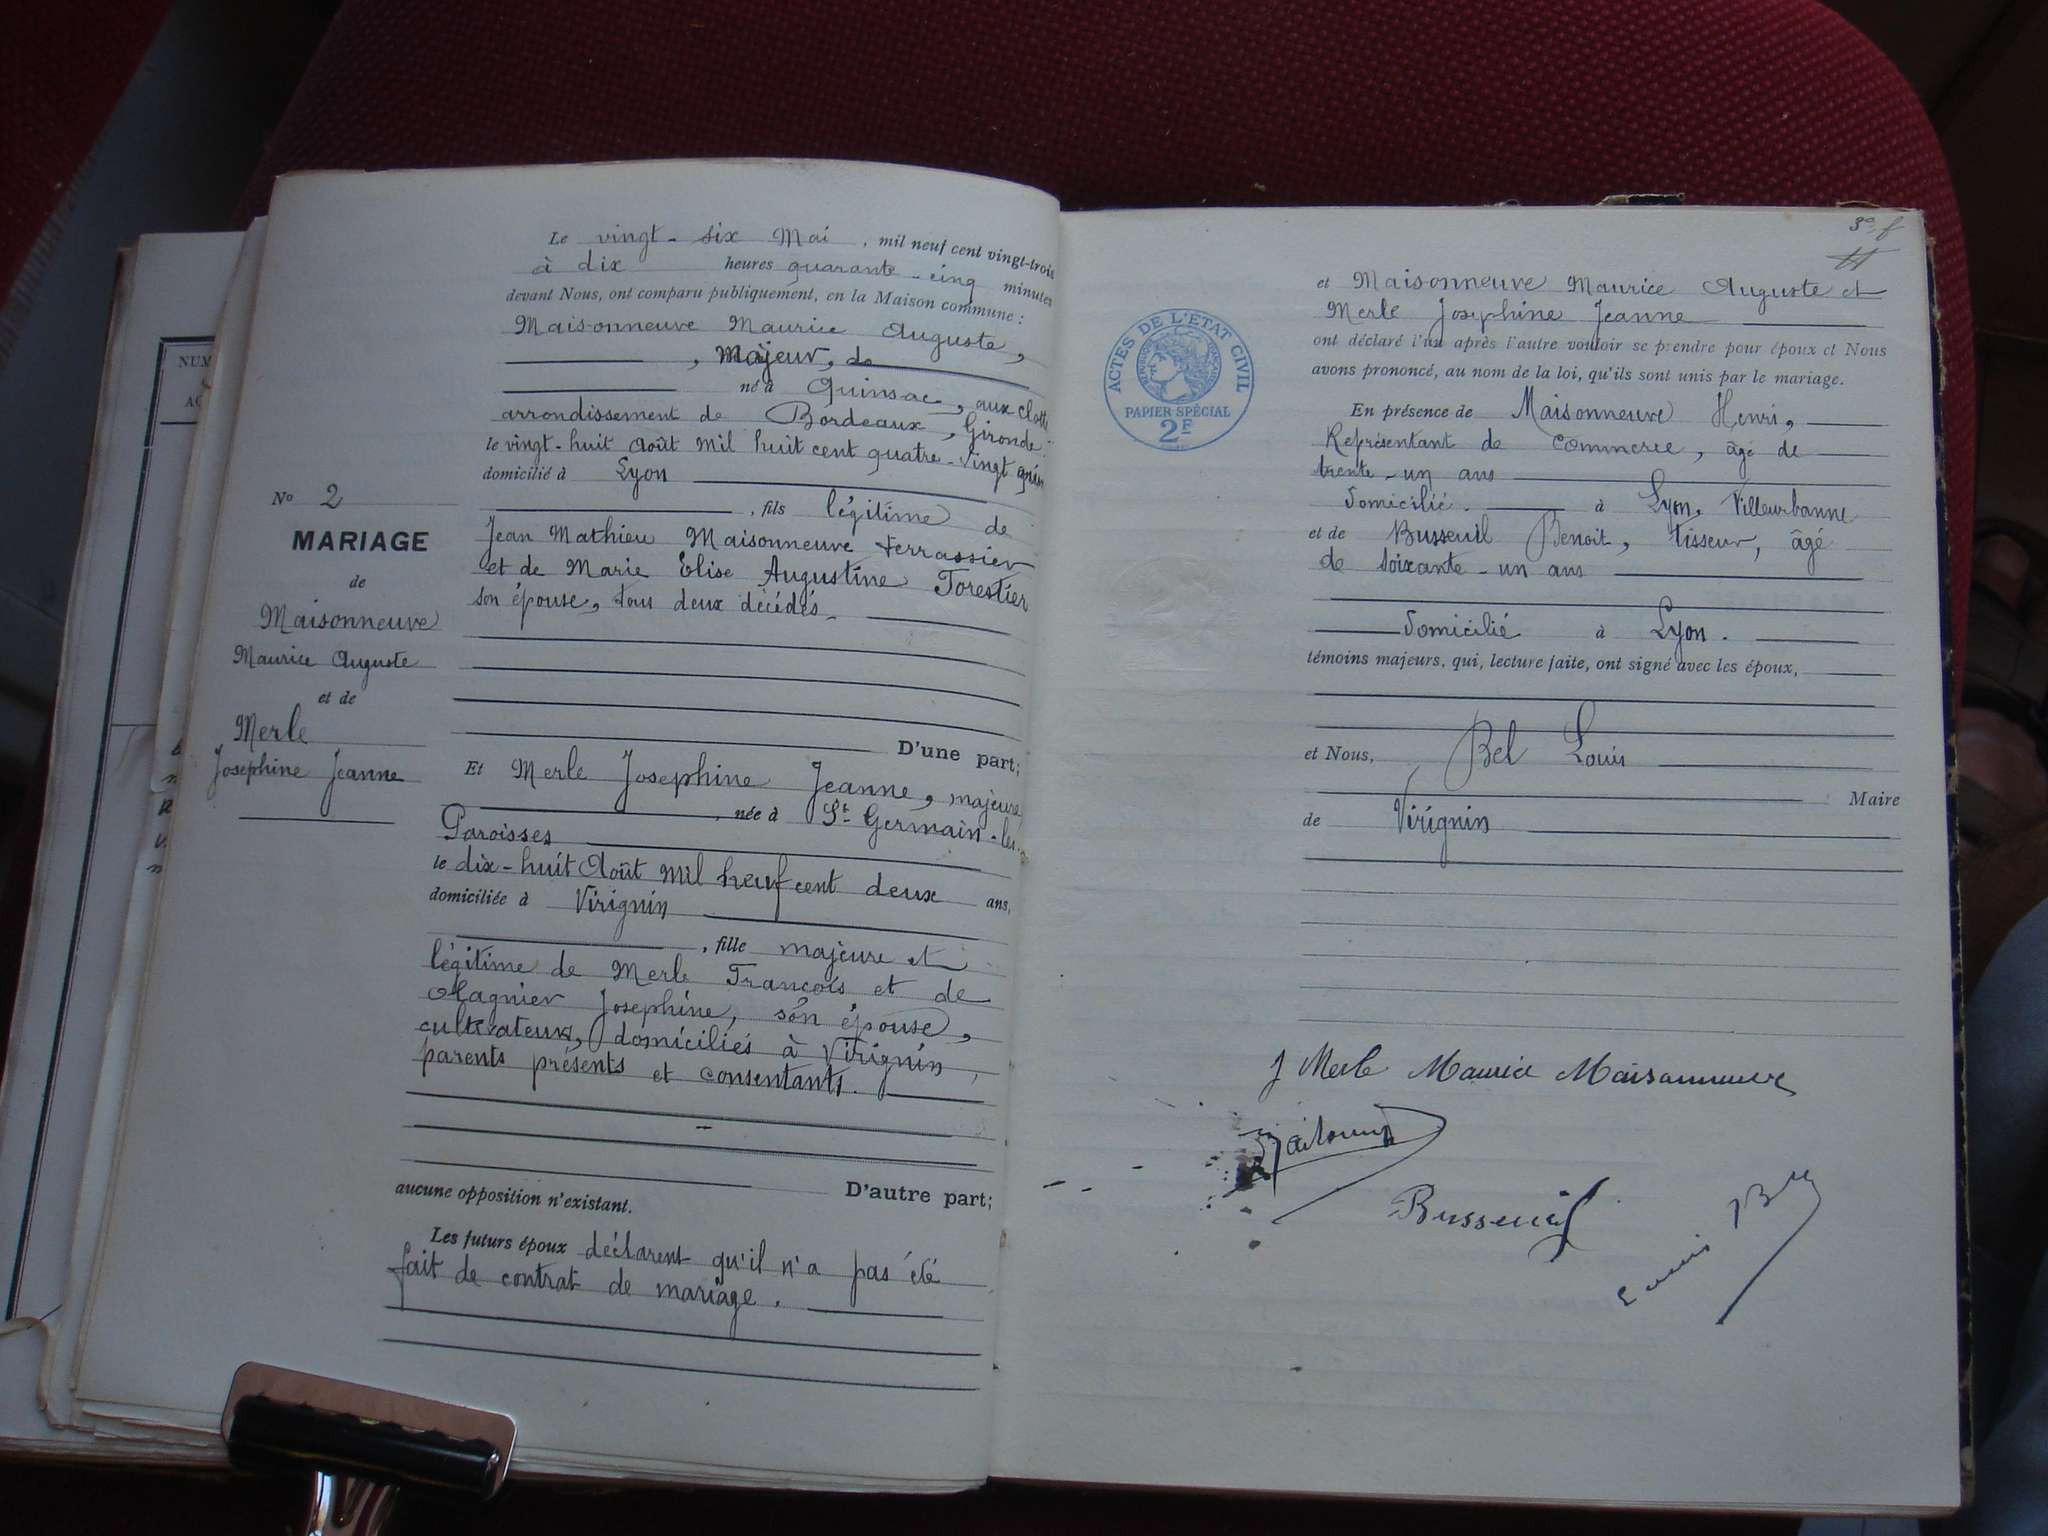 NUM
N° 2
MARIAGE
de
Maisonneuve
Maurice Auguste
et de
Merle
Josephine Jeanne
Le vingt-six Mai, mil neuf cent vingt-trois
à dix heures quarante-cinq minutes
devant Nous, ont comparu publiquement, en la Maison commune :
Maisonneuve Maurice Auguste,
, Majeur, de
né à Quinsac, aux
arrondissement de Bordeaux, Gironde
le vingt-huit Août mil huit cent quatre-vingt
domicilié à Lyon
, fils légitime de
Jean Mathieu Maisonneuve terrassier
et de Marie Elise Augustine Forestier
son épouse, tous deux décédés.
D'une part;
Et Merle Josephine Jeanne, majeure
, née à St Germain-les-
Paroisses
le dix-huit Août mil neuf cent deux ans,
domiciliée à Virignin
, fille majeure et
légitime de Merle François et de
Magnier Josephine, son épouse,
cultivateurs, domiciliés à Virignin,
parents présents et consentants.
D'autre part;
aucune opposition n'existant.
Les futurs époux déclarent qu'il n'a pas été
fait de contrat de mariage.
ACTES DE L'ETAT CIVIL
PAPIER SPÉCIAL
2F
et Maisonneuve Maurice Auguste et
Merle Josephine Jeanne
ont déclaré l'un après l'autre vouloir se prendre pour époux et Nous
avons prononcé, au nom de la loi, qu'ils sont unis par le mariage.
En présence de Maisonneuve Henri,
Représentant de Commerce, âgé de
trente-un ans
Domicilié à Lyon, Villeurbanne
et de Busseuil Benoit, tisseur, âgé
de soixante-un ans
Domicilié à Lyon.
témoins majeurs, qui, lecture faite, ont signé avec les époux,
et Nous, Bel Louis
Maire
de Virignin
J Merle Maurice Maisonneuve
Busseuil